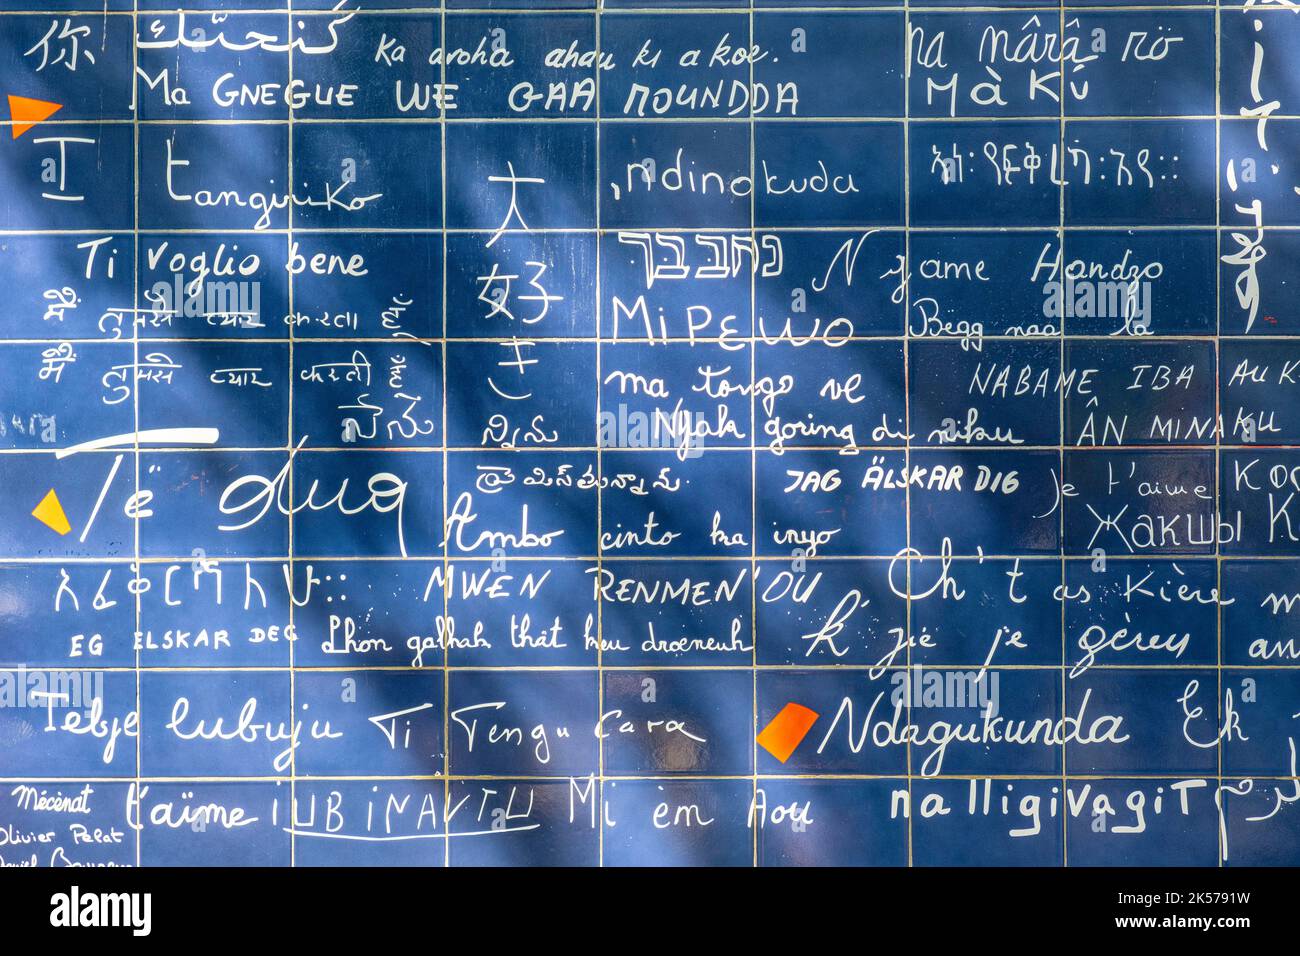 你
Ka aroha ahau ki a koe.
na nârâ rö
Ma GNEGUE WE GAA MOUNDDA
Mà Kú
I tangiriko
大
ndinokuda
Ti Voglio bene
好
נחבבך
N'game Handzo
मैं तुमसे प्यार करता हूँ
MiPEWO
Bëgg naa la
मैं तुमसे प्यार करती हूँ
ma tongo ve
NABAME IBA AUK
నేను
నిన్ను
Nyak goring di niku
ÂN MINAKU
Të dua
ప్రేమిస్తున్నాను.
JAG ÄLSKAR DIG
Je t'aime
Ambo cinto ka inyo
Жакшы К
አፈቅርሻለሁ::
MWEN RENMEN'OU
Ch't as kière m
EG ELSKAR DEG
Lhon galhak that keu droeneuh
K' jié je gèrey an
Tebje lubuju
Ti Tengu Cara
Ndagukunda
Ek
Mécènat
t'aïme
iUBiNAVTU
Mi èm Aou
nalligivagit
Olivier Pelat
alamy
Image ID: 2K5791W
www.alamy.com